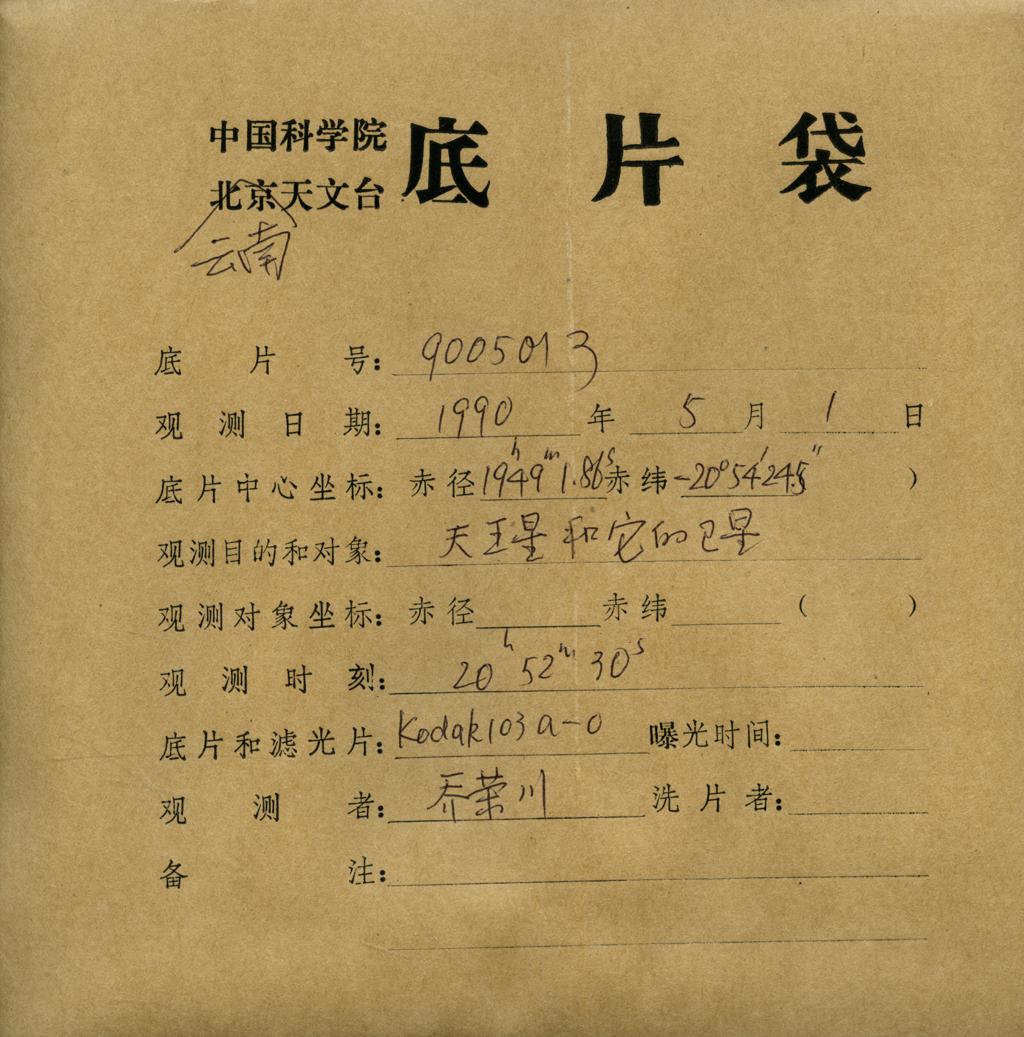 中国科学院
北京天文台
底片袋
云南
底片号: 9005013
观测日期: 1990年5月1日
底片中心坐标: 赤径19h49m1.86s赤纬-20°54′24.5″ )
观测目的和对象: 天王星和它的卫星
观测对象坐标: 赤径 赤纬 ( )
观测时刻: 20h52m30s
底片和滤光片: Kodak103a-O 曝光时间:
观测者: 乔荣川 洗片者:
备注: